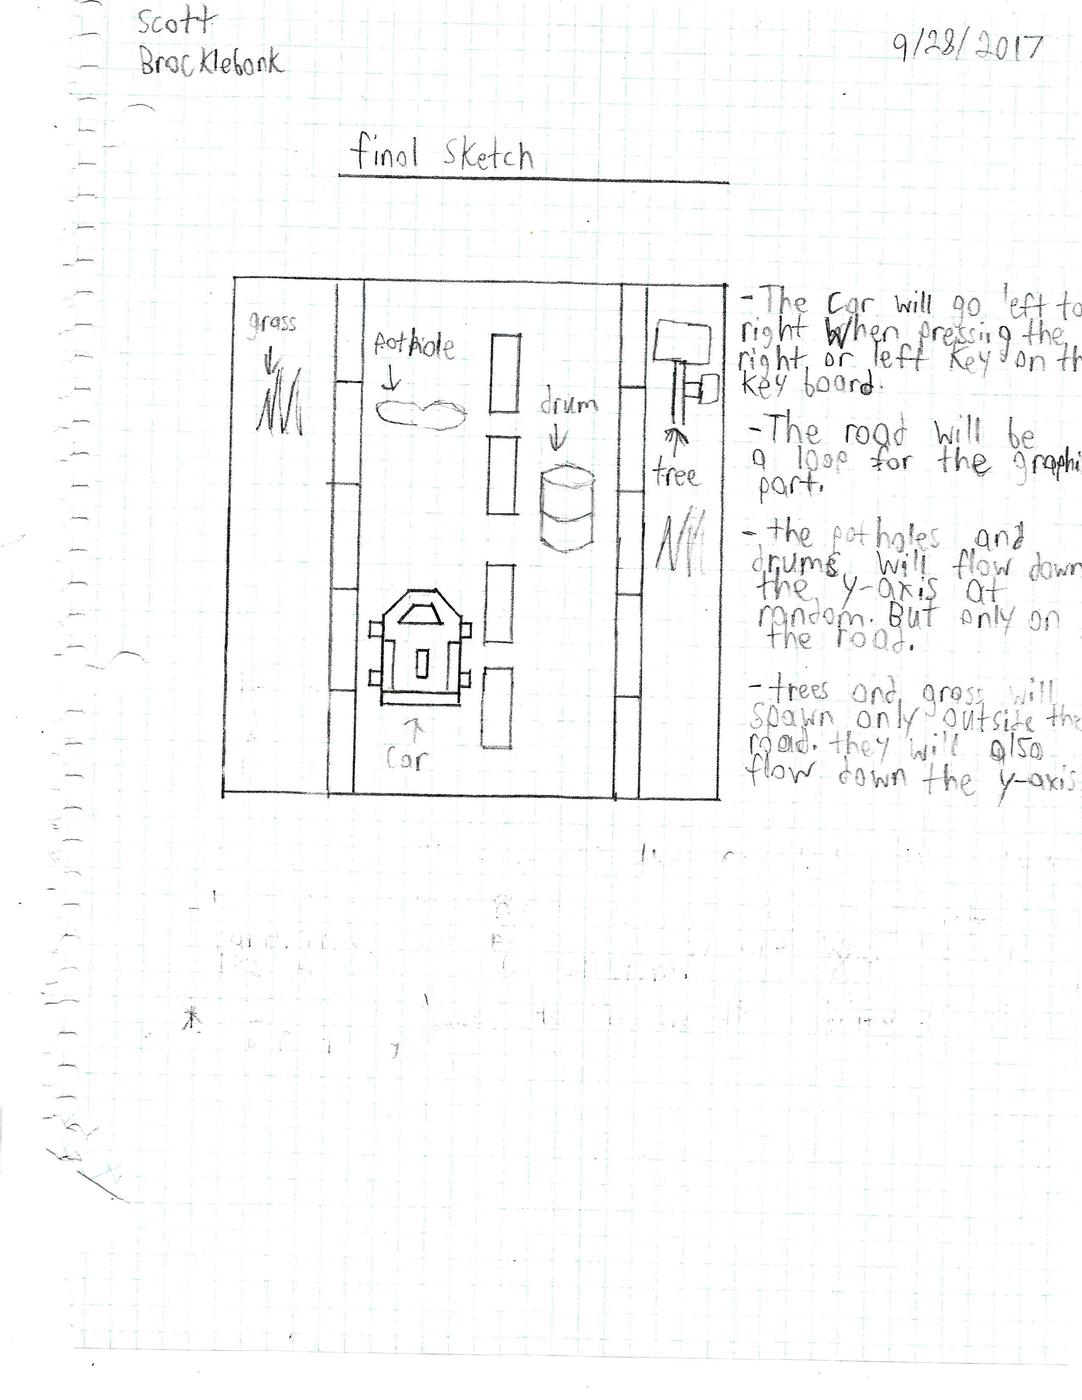 Scott
Brocklebank
9/28/2017
final Sketch
grass
pothole
drum
tree
car
- The car will go left to
right when pressing the
right or left key on th
key board.
- The road will be
a loop for the graphi
part.
- the potholes and
drums will flow down
the y-axis at
random. But only on
the road.
- trees and grass will
spawn only outside the
road. they will also
flow down the y-axis
*